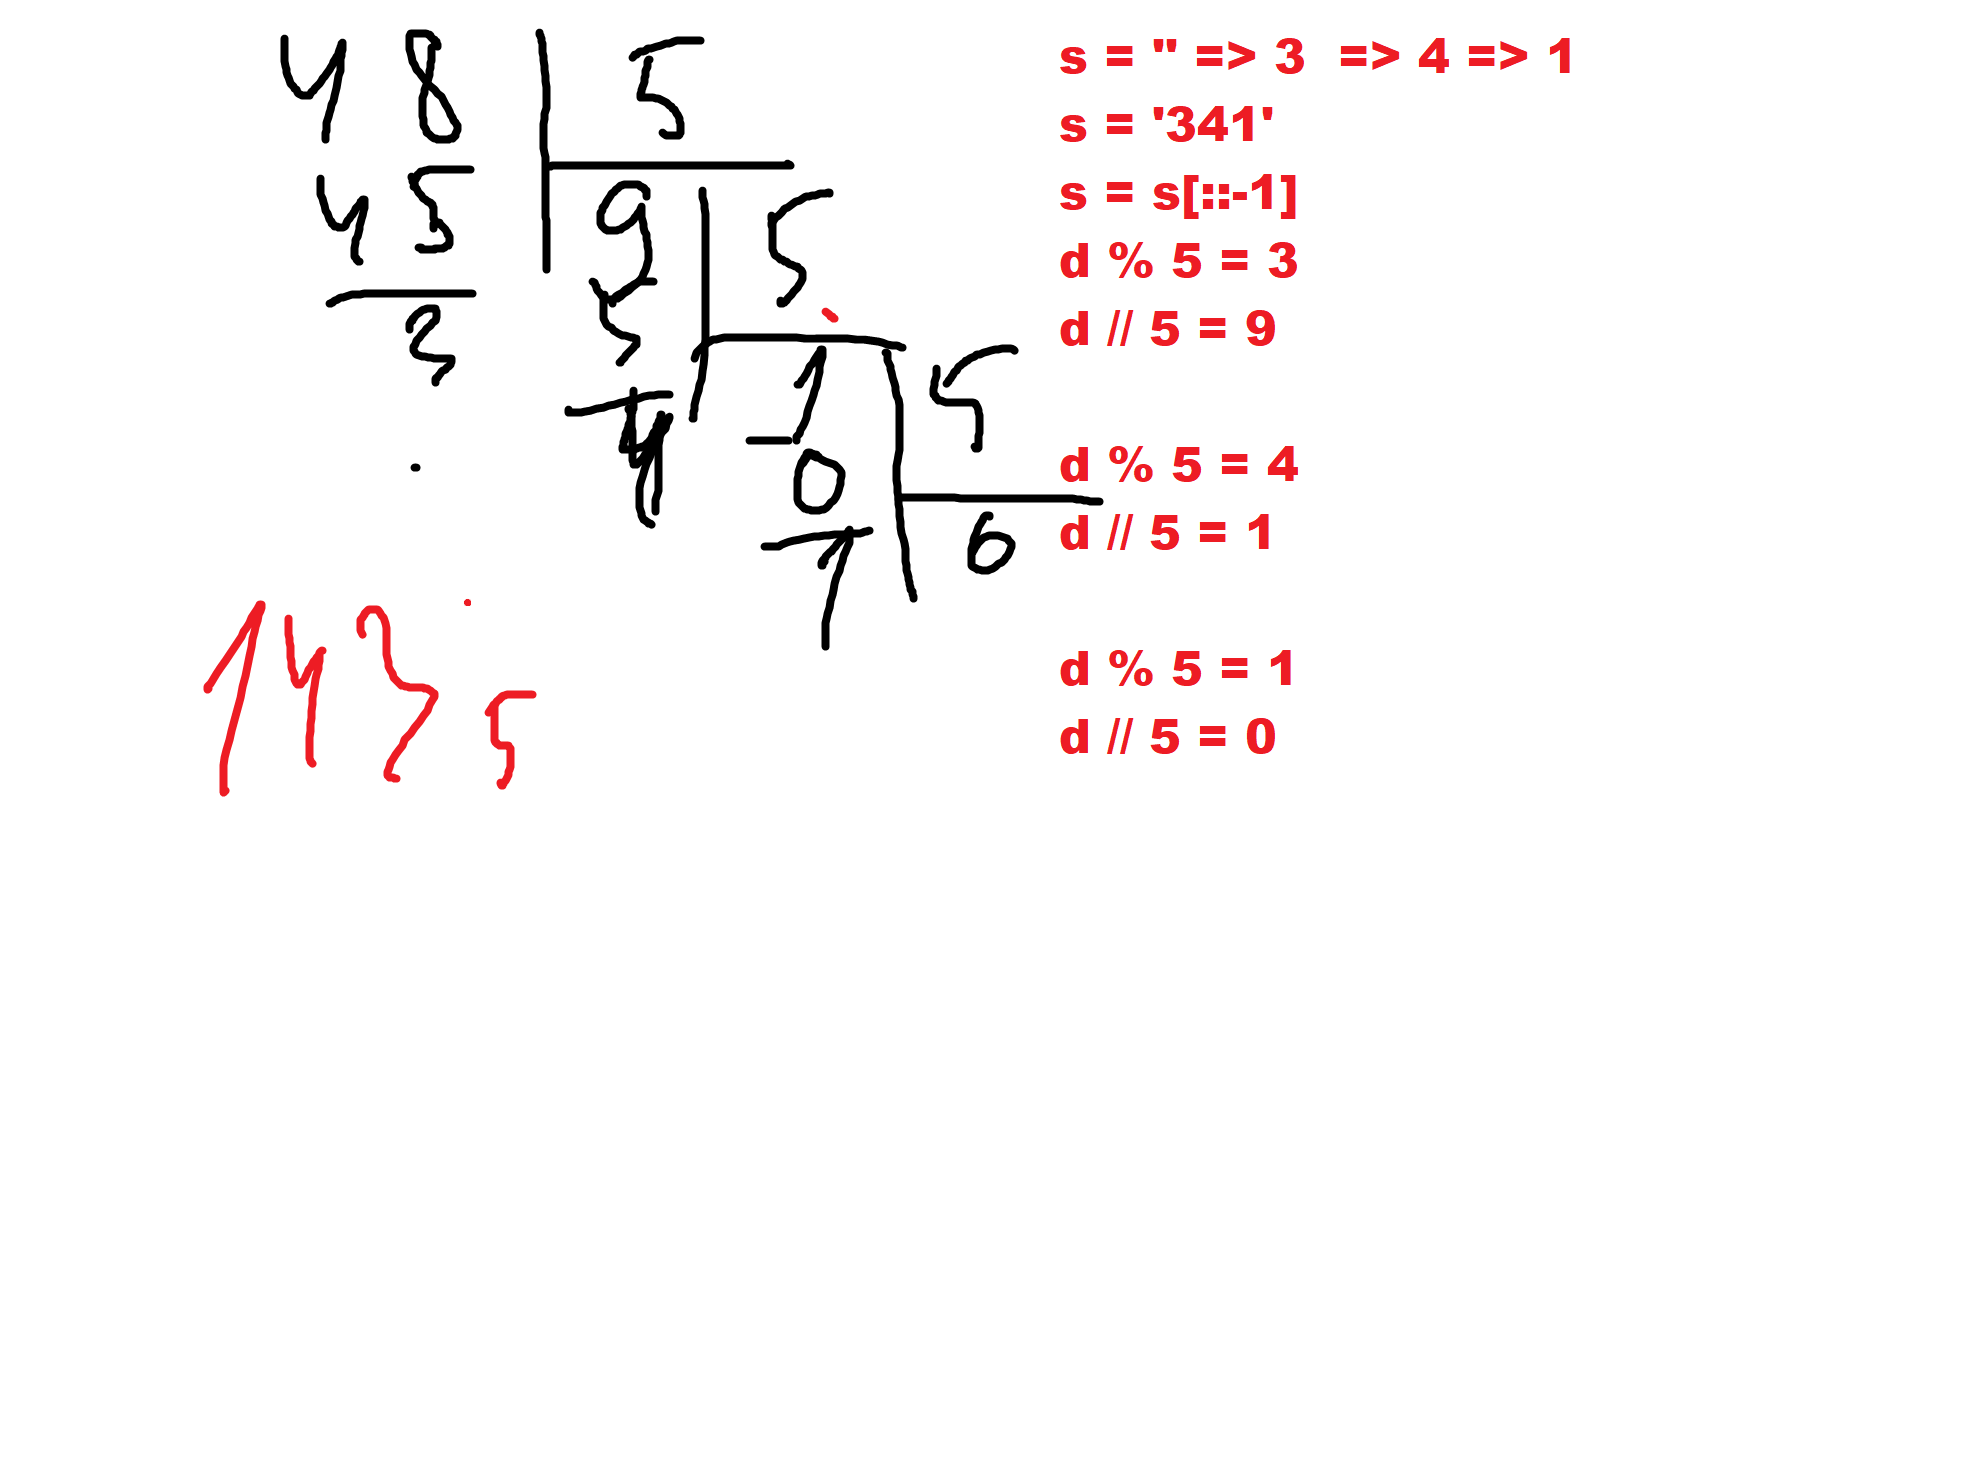 48 5
45 9 5
3 5 1 5
4 0 6
1
143 5
s = '' => 3 => 4 => 1
s = '341'
s = s[::-1]
d % 5 = 3
d // 5 = 9
d % 5 = 4
d // 5 = 1
d % 5 = 1
d // 5 = 0